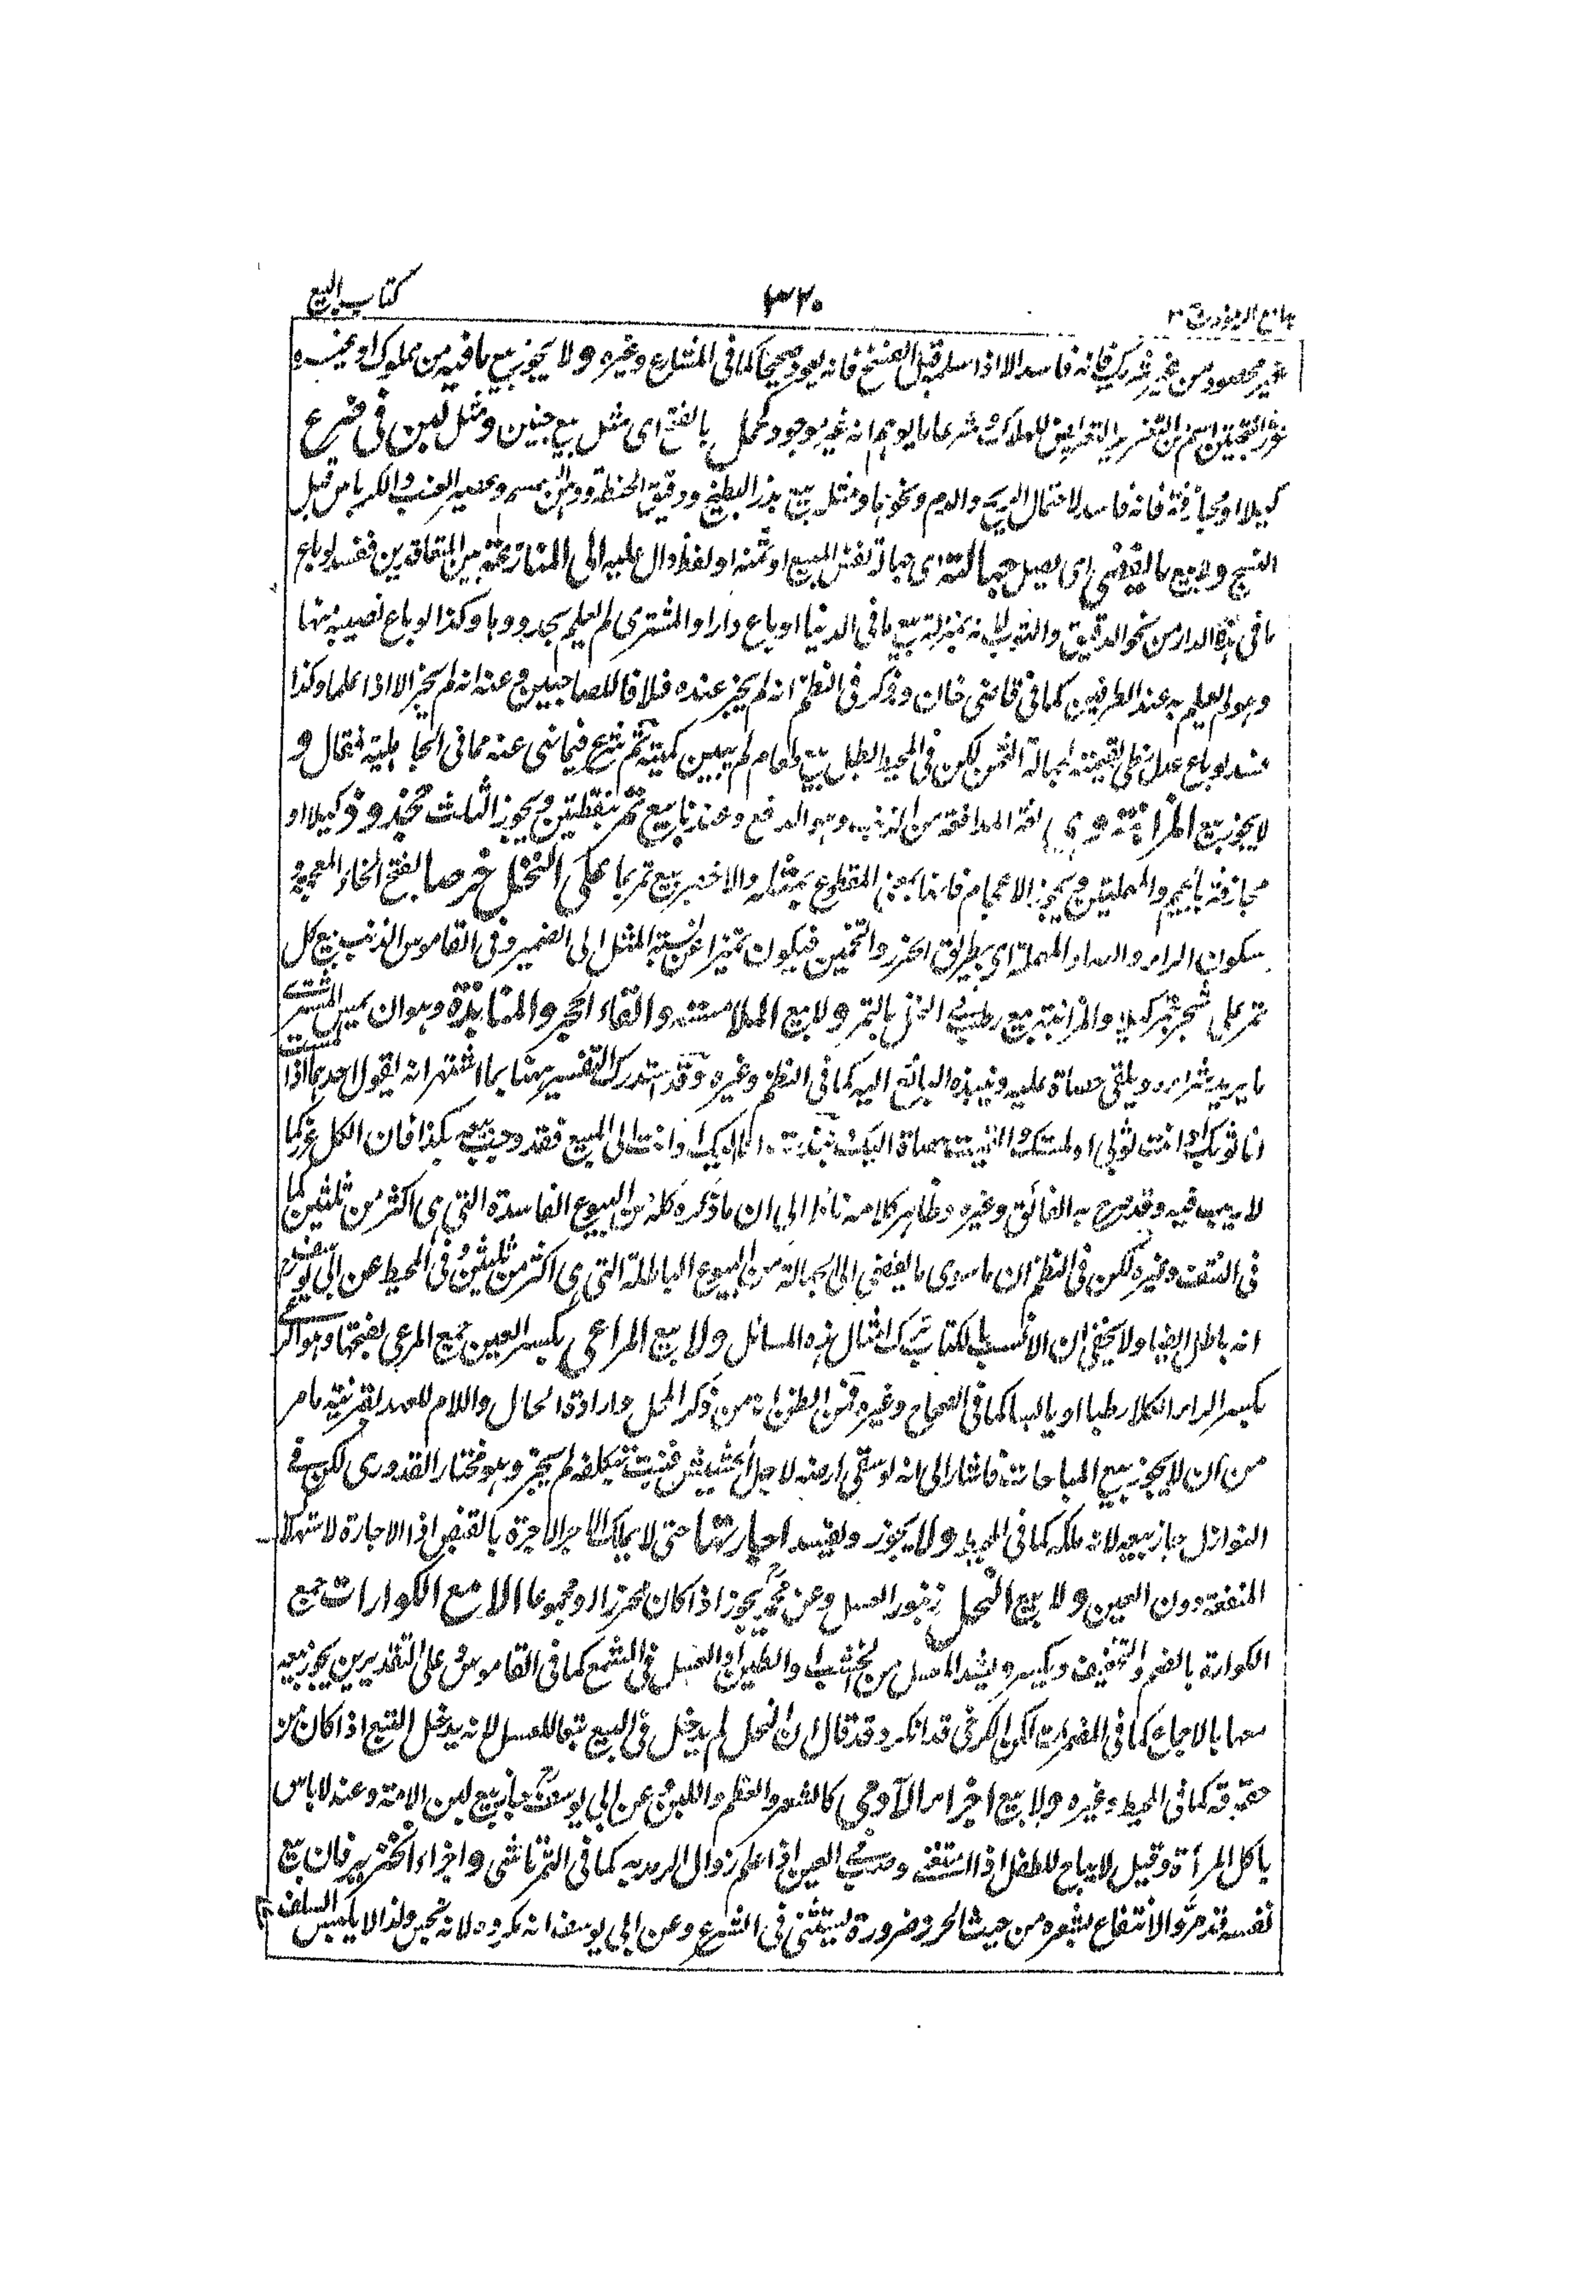 جامع الرموز ٣٢٠ كتاب البيع
غير محصود من غير شريك فانه فاسد الا اذا سلمه قبل الفسخ فانه يعود صحيحا كما فى المشارع وغيره ولا يجوز بيع ما فيه من مملوك او غيره
غرر بفتحتين اسم من التغرير التعريض للهلاك شرعا ما يوهم انه غير موجود كحمل بالفتح اى مثل بيع جنين ومثل لبن فى ضرع
كيلا او مجازفة فانه فاسد لاحتمال الريح والدم ونحوها ومثل بيع بذر البطيخ ودقيق الحنطة ودهن سمسم وعصير العنب والكرباس قبل
النسج ولا بيع ما يفضى اى يصل جهالته اى جهالة نفس المبيع او ثمنه او لفظ دال عليه الى المنازعة بين المتعاقدين ففسد لو باع
ما فى هذه الدار من نحو الدقيق والثوب لانه بمنزلة بيع ما فى الدنيا او باع دارا والمشترى لم يعلم بحدودها وكذا لو باع نصيبه منها
وهو لم يعلم به عند الطرفين كما فى قاضى خان وذكر فى النظم انه لم يجز عنده خلافا للصاحبين وعنه انه لم يجز الا اذا علما وكذا
فسد لو باع عدل حنطى بقيمته لجهالة الثمن لكن فى المحيط بطل بيع طعام لم يبين كميته ثم شرع فيما نهى عنه مما فى الجاهلية فقال و
لا يجوز بيع المزابنة وهى لغة المدافعة من الزبن وهو الدفع وعندنا بيع ثمر بنقطتين ويجوز الثلث مجذوذ كيلا او
مجازفة بالجيم والمهملتين ويجوز الاعجام فانها بمعنى المقطوع بمثله والاخصر بيع تمر بما على النخل خرصا بفتح الخاء المعجمة و
سكون الراء والصاد المهملة اى بطريق الحزر والتخمين فيكون تميزا عن نسبة المثل الى الضمير وفى القاموس الزبن بيع كل
ثمر على شجر بتمر كيلا والمزابنة بيع رطب فى النخل بالتمر ولا بيع الملامسة والقاء الحجر والمنابذة وهو ان يمس المشترى
ما يريد شراءه ويلقى حصاة عليه وينبذه البائع اليه كما فى النظم وغيره وقد استدرك التفسير ههنا بما اشتهر انه يقول احدهما اذا لمست
انا ثوبك او انت ثوبى او لمستك او القيت حصاة اليك او نبذته اليك او انت الى المبيع فقد وجب بيعه بكذا فان الكل غرر كما
لا ريب فيه وقد صرح به الفائق وغيره وظاهر كلامه ناظر الى ان ما ذكره كله من البيوع الفاسدة التى هى اكثر من ثلثين كما
فى النتف وغيره لكن فى النظم ان ما سوى ما يفضى الى الجهالة من البيوع الباطلة التى هى اكثر من ثلثين وفى المحيط عن ابى يوسف
انه باطل ايضا ولا يخفى ان الانسب بالكتاب ترك امثال هذه المسائل ولا بيع المراعى بكسر العين جمع المرعى بفتحها وهو الرعى
بكسر الراء الكلأ رطبا او يابسا كما فى الصحاح وغيره فمن الظن انه من ذكر المحل وارادة الحال واللام للعهد لقرينة ما مر
من ان لا يجوز بيع المباحات فاشار الى انه لو سقى ارضه لاجل الحشيش فنبت بتكلفه لم يجز وهو مختار القدورى لكن فى
النوازل جاز بيعه لانه ملكه كما فى المحيط ولا يجوز ويفسد اجارتها حتى لا يملك الآجر الاجرة بالقبض اذا الاجارة لاستهلاك
المنفعة دون العين ولا بيع النحل زنبور العسل وعن محمد يجوز اذا كان محرزا ومجموعا الا مع الكوارات جمع
الكوارة بالضم والتخفيف ويكسر ويشدد المعسل من الخشب والطين او العسل فى الشمع كما فى القاموس وعلى التقديرين يجوز بيعه
معها بالاجماع كما فى المضمرات لكن الكرخى قد انكره وقد قال ان النحل لم يدخل فى البيع تبعا للعسل لانه يدخل التبع اذا كان من
حقوقه كما فى المحيط وغيره ولا بيع اجزاء الآدمى كالشعر والعظم واللبن وعن ابى يوسف جاز بيع لبن الامة وعنه لا باس
باكل المرأة وقيل لا يباح للطفل اذا استغنى وصب فى العين اذا علم زوال الرمد به كما فى التمرتاشى واجزاء الخنزير فان بيع
نفسه قد مر والانتفاع بشعره من حيث الخرز ضرورة ليستثنى فى الشرع وعن ابى يوسف انه مكروه لانه نجس ولذا لا يلبس السلف